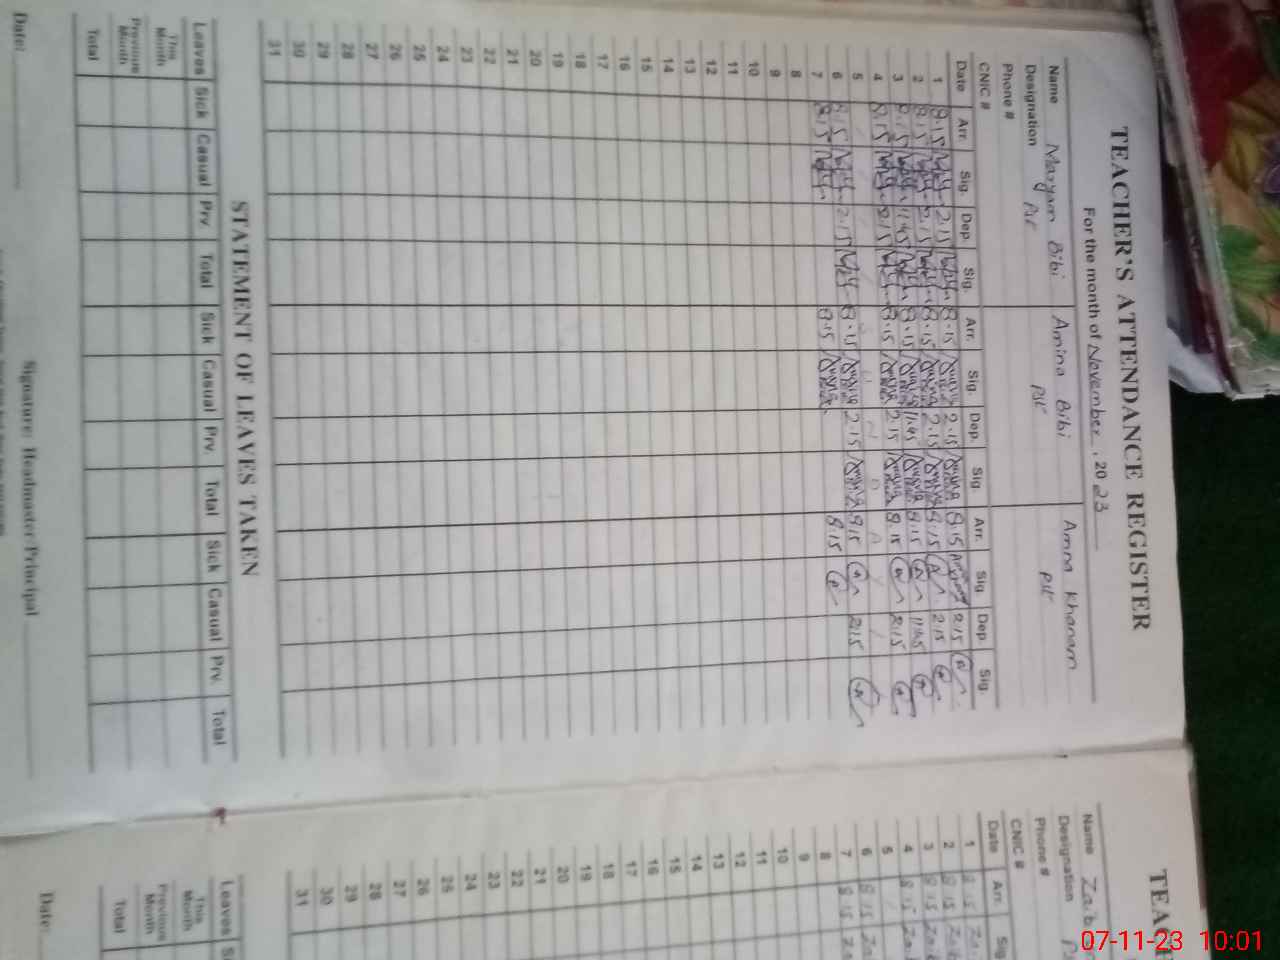 TEACHER'S ATTENDANCE REGISTER
For the month of November, 2023
Name Maryam Bibi Amina Bibi Amna Khanam
Designation PST PST PST
Phone #
CNIC #
Date Arr. Sig. Dep. Sig. Arr. Sig. Dep. Sig. Arr. Sig. Dep. Sig.
1 8.15 2.15 8.15 2.15 8.15 2.15
2 8.15 2.15 8.15 2.15 8.15 2.15
3 8.15 11.45 8.15 11.45 8.15 11.45
4 8.15 2.15 8.15 2.15 8.15 2.15
5
6 8.15 2.15 8.15 2.15 8.15 2.15
7 8.15 8.15 8.15
8
9
10
11
12
13
14
15
16
17
18
19
20
21
22
23
24
25
26
27
28
29
30
31
STATEMENT OF LEAVES TAKEN
Leaves Sick Casual Prv. Total Sick Casual Prv. Total Sick Casual Prv. Total
This Month
Previous Month
Total
Date: Signature: Headmaster/Principal
TEAC
Name Zaib
Designation
Phone #
CNIC #
Date Arr. Sig
1 8.15
2 8.15
3 8.15
4 8.15
5
6 8.15
7 8.15
8
9
10
11
12
13
14
15
16
17
18
19
20
21
22
23
24
25
26
27
28
29
30
31
Leaves S
This Month
Previous Month
Total
Date:
07-11-23 10:01